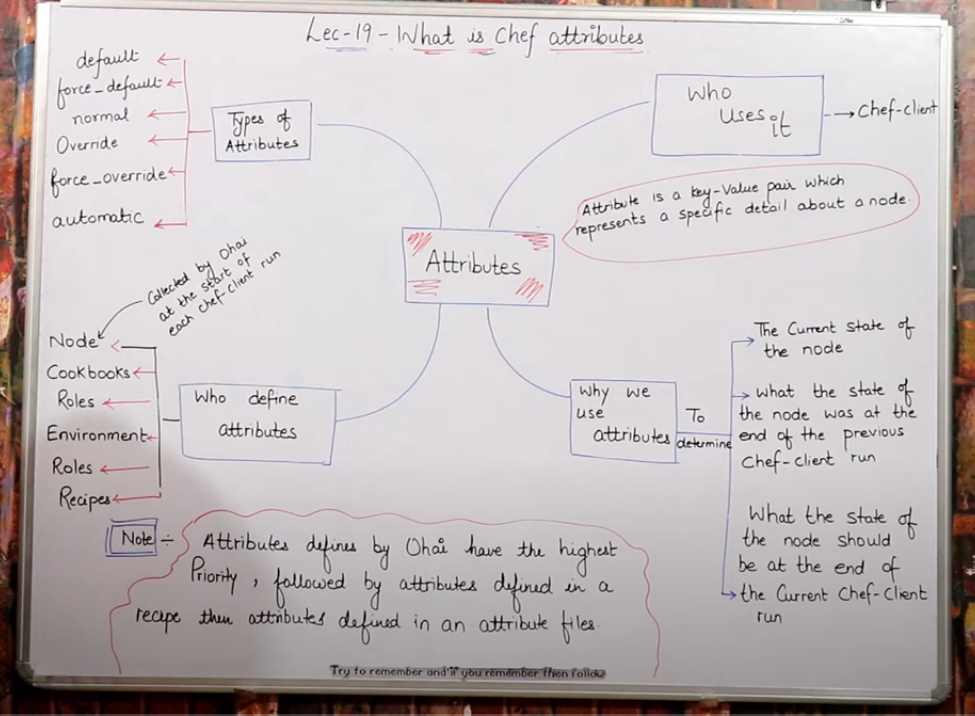 Lec-19 - What is Chef attributes
default
force_default
normal
Override
force_override
automatic
Types of
Attributes
Who
Uses it
Chef-client
Attribute is a key-value pair which
represents a specific detail about a node.
Attributes
Collected by Ohai
at the start of
each chef-client run
Node
Cookbooks
Roles
Environment
Roles
Recipes
Who define
attributes
Why we
use
attributes
To
determine
The Current state of
the node
what the state of
the node was at the
end of the previous
Chef-client run
What the state of
the node should
be at the end of
the Current Chef-Client
run
Note ÷ Attributes defines by Ohai have the highest
Priority, followed by attributes defined in a
recipe then attributes defined in an attribute files.
Try to remember and if you remember then follow